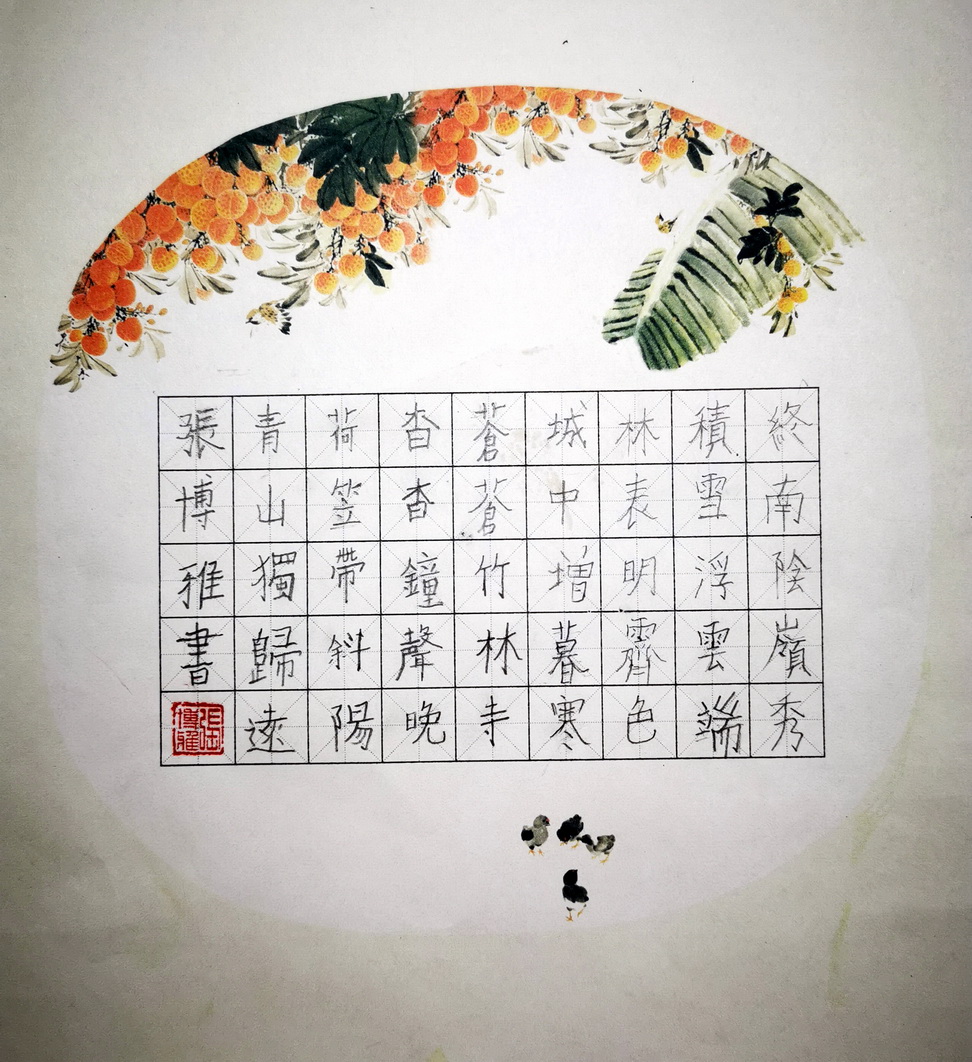 終南陰嶺秀
積雪浮雲端
林表明霽色
城中增暮寒
蒼蒼竹林寺
杳杳鐘聲晚
荷笠帶斜陽
青山獨歸遠
張博雅書
張印博雅